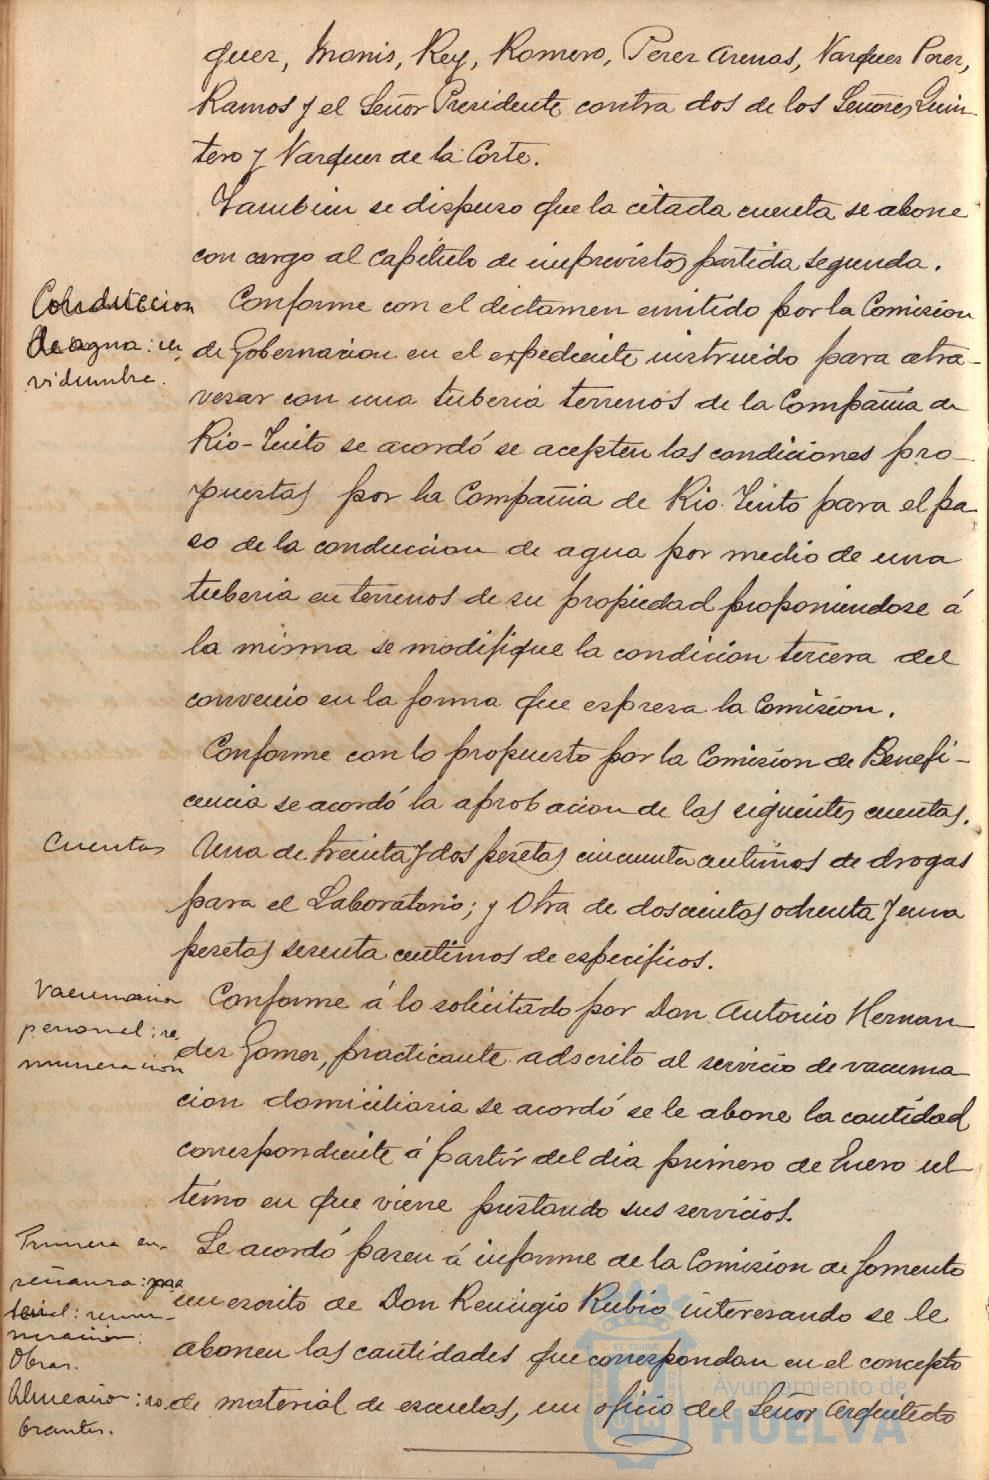 quez, Monis, Rey, Romero, Perez Arenas, Vazquez Perez,
Ramos y el Señor Presidente contra dos de los Señores Quin
tero y Vazquez de la Corte.
Tambien se dispuso que la citada cuenta se abone
con cargo al capitulo de imprevistos partida segunda.
Conduccion
de agua: ser
vidumbre.
Conforme con el dictamen emitido por la Comision
de Gobernacion en el expediente instruido para atra-
vesar con una tuberia terrenos de la Compañia de
Rio-Tinto se acordó se acepten las condiciones pro-
puestas por la Compañia de Rio-Tinto para el pa
so de la conduccion de agua por medio de una
tuberia en terrenos de su propiedad proponiendose á
la misma se modifique la condicion tercera del
convenio en la forma que expresa la Comision.
Conforme con lo propuesto por la Comision de Benefi-
cencia se acordó la aprobacion de las siguientes cuentas.
Cuentas
Una de treinta y dos pesetas cincuenta centimos de drogas
para el Laboratorio; y Otra de doscientas ochenta y una
pesetas sesenta centimos de especificos.
Vacunacion
personal: re
muneracion
Conforme á lo solicitado por Don Antonio Hernan-
dez Gomez, practicante adscrito al servicio de vacuna-
cion domiciliaria se acordó se le abone la cantidad
correspondiente á partir del dia primero de Enero ul-
timo en que viene prestando sus servicios.
Primera en-
señanza:
muneracion:
Obras.
Se acordó pasen á informe de la Comision de fomento
un escrito de Don Remigio Rubio interesando se le
abonen las cantidades que correspondan en el concepto
de material de escuelas, un oficio del Señor Arquitecto
brantes.
Ayuntamiento de
HUELVA